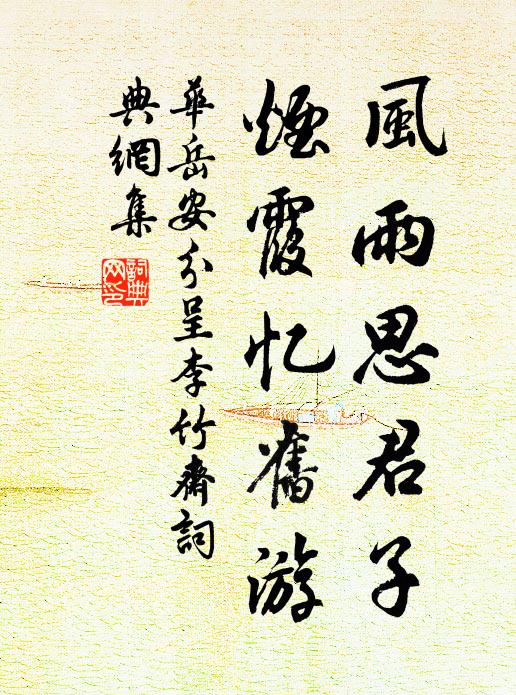 風雨思君子
煙霞忆舊游
華岳安分呈李竹齋詞
典網集
詞典
网印